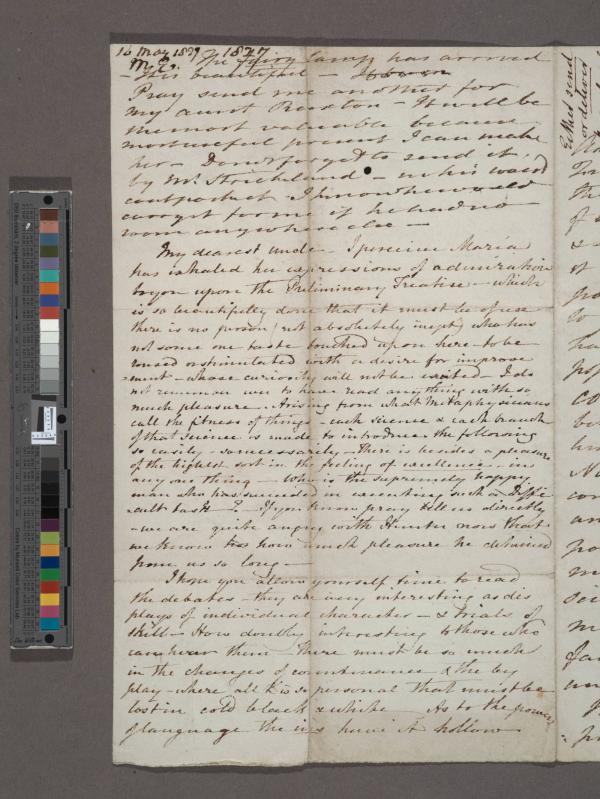 16 May 1827 1827
The Fairy Lamp has arrived
- this beautiful -
Pray send me another for
my aunt Ruxton - It will be
the most valuable because
most useful present I can make
her - Do not forget to send it
by Mr. Strickland - in his
I know he would
carry it for me if he had no
room anywhere else -
My dearest uncle - I perceive Maria
has exhaled her expressions of admiration
to you upon the Preliminary Treatise - which
is so beautifully done that it must be of use
there is no person (not absolutely inept) who has
not some one taste touched upon here - to be
roused or stimulated with a desire for improve
ment - whose curiosity will not be excited - I do
not remember ever to have read anything with so
much pleasure. Arising from what Metaphysicians
call the fitness of things - each science & each branch
of that science is made to introduce the following
so easily - so necessarily - There is besides a pleasure
of the highest sort in the feeling of excellence - in
any one thing - Who is the supremely happy
man who has succeeded in executing such a Diffi
cult task - ? If you know pray tell us directly
- we are quite angry with Hunter now that
we know how much pleasure he detained
from us so long -
I hope you allow yourself time to read
the debates - they are very interesting as dis
plays of individual character - & trials of
skill - How doubly interesting to those who
can hear them there must be so much
in the changes of countenance & the by
play - where all is so personal that must be
lost in cold black & white - As to the powers
of language the have A hollow
Either send
or deliver